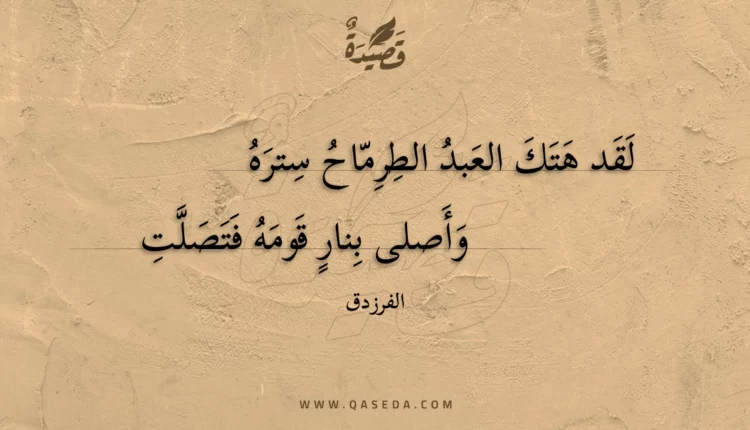 قَصِيدَةٌ
لَقَد هَتَكَ العَبدُ الطِرِمّاحُ سِترَهُ
وَأَصلى بِنارٍ قَومَهُ فَتَصَلَّتِ
الفرزدق
WWW.QASEDA.COM